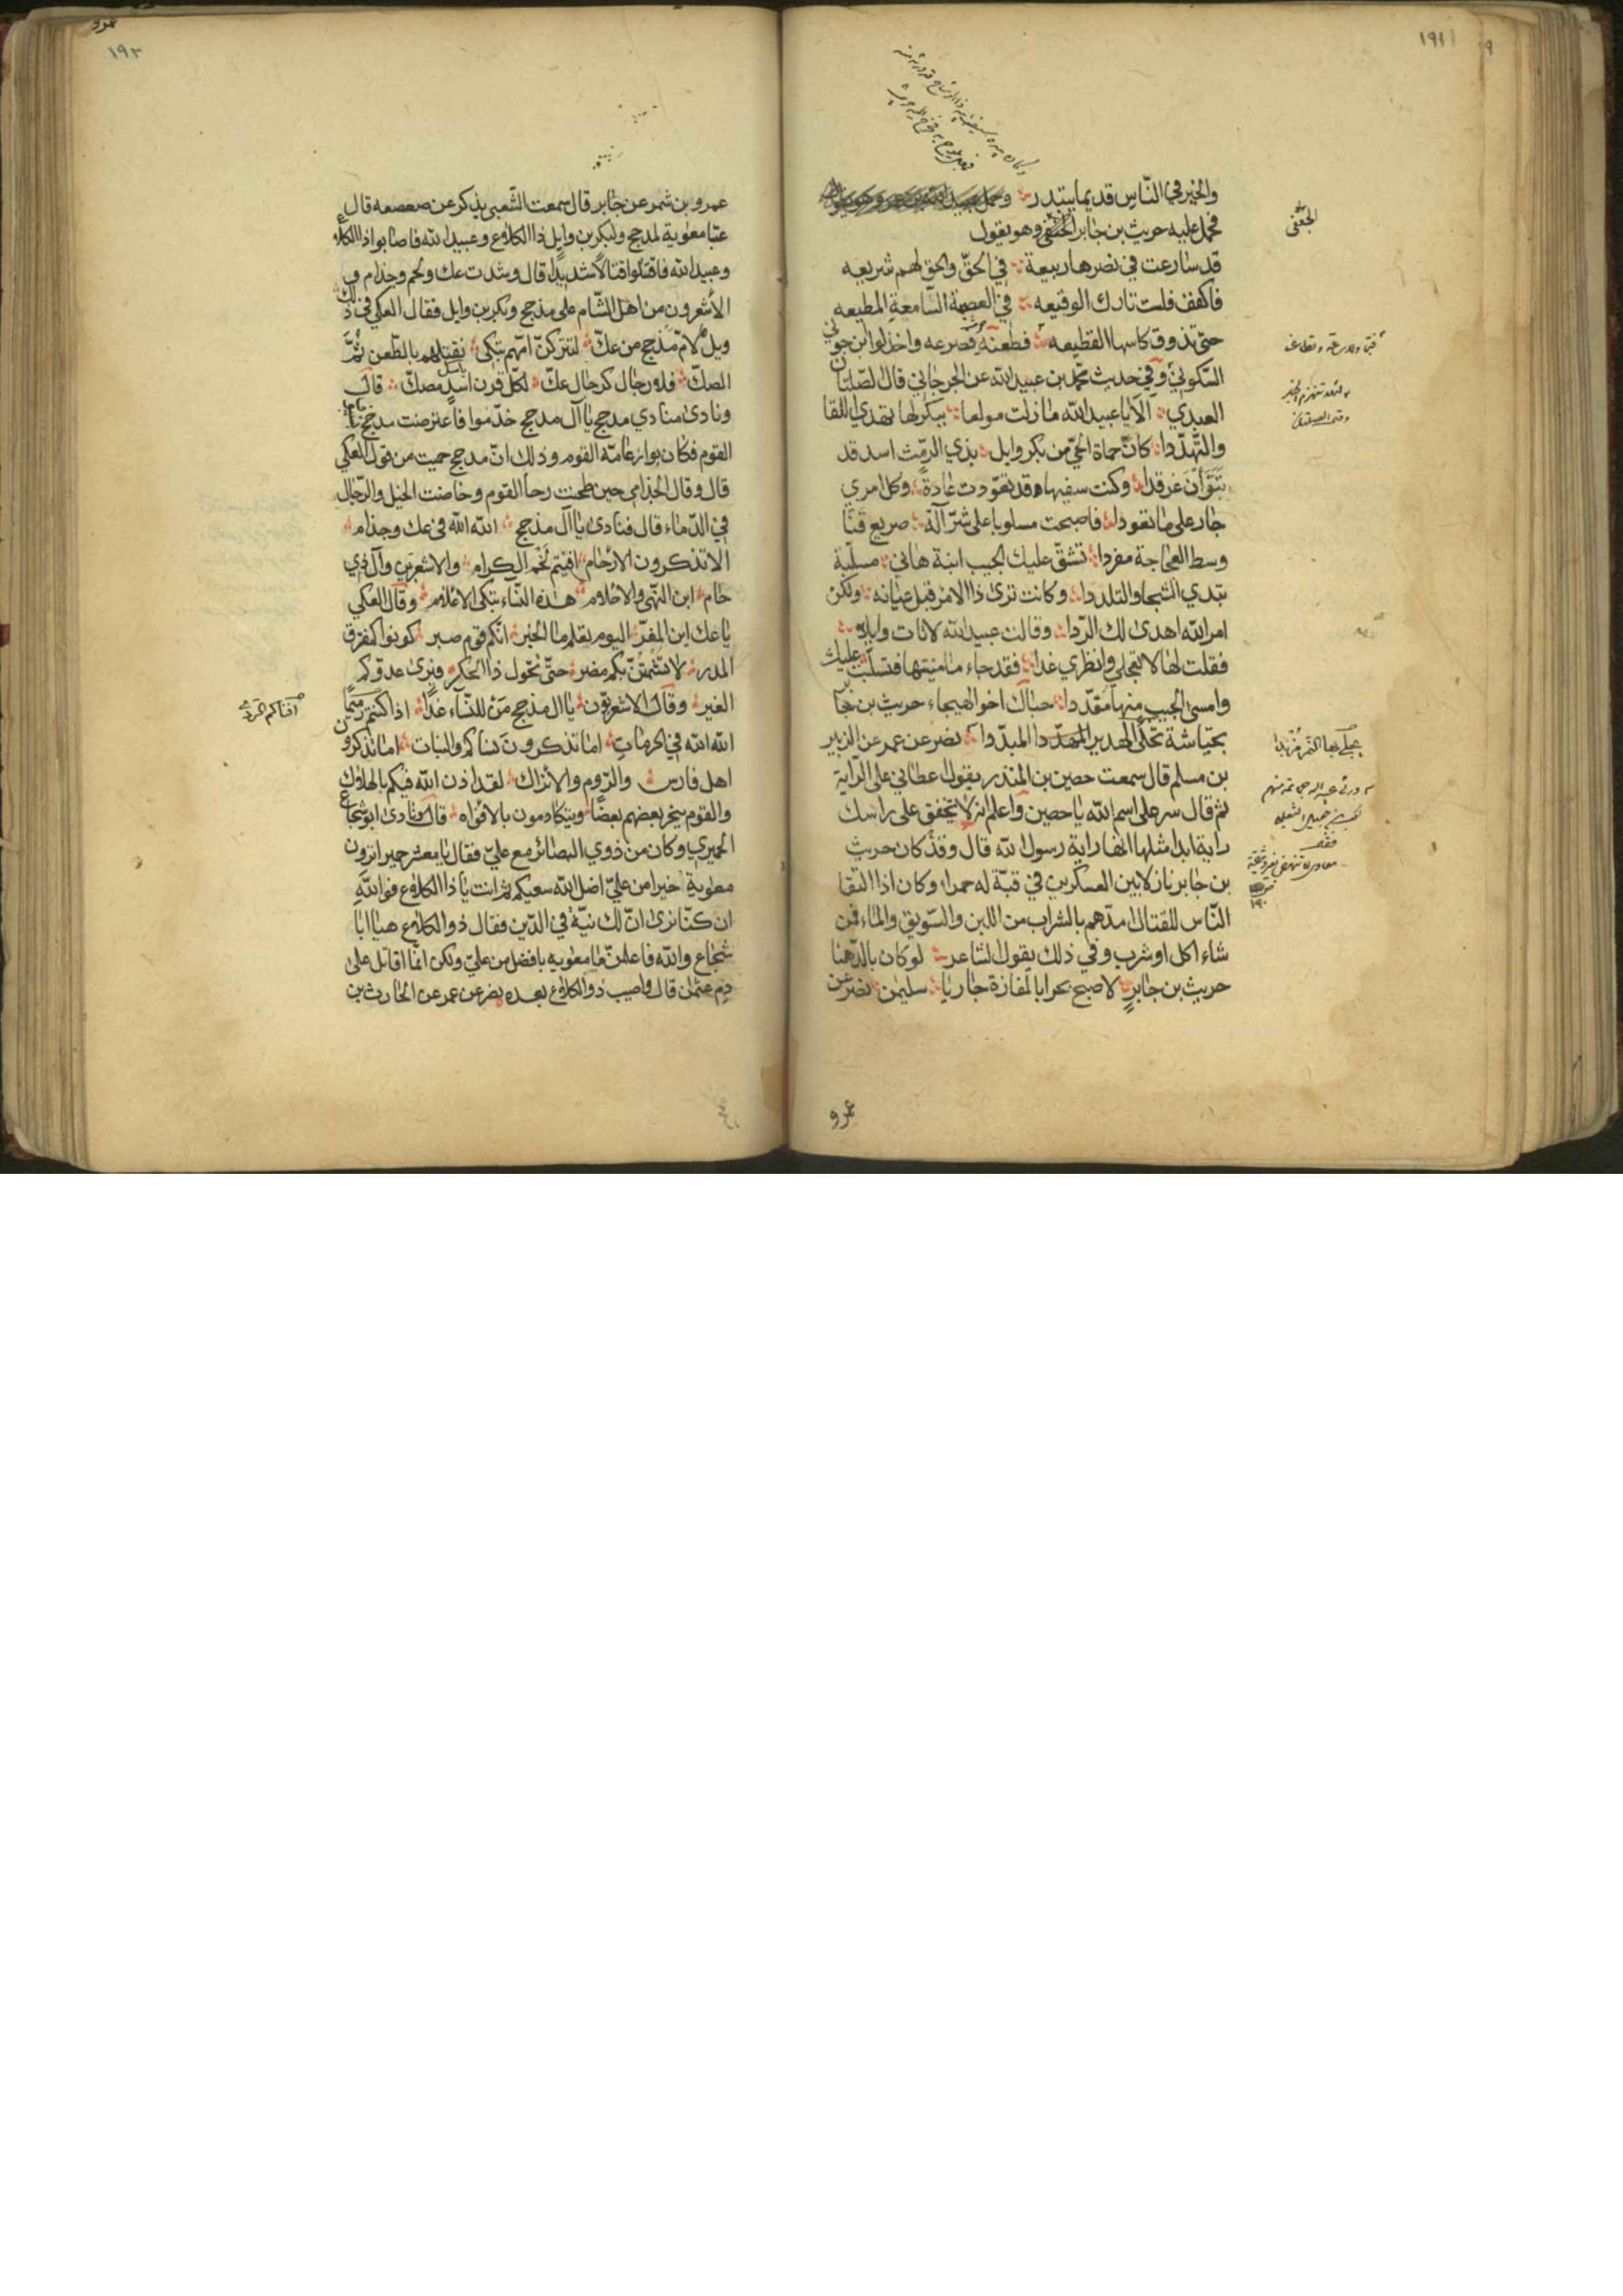 ١٩١
والخير في الناس قديما يبتدر
فحمل عليه حريث بن جابر الحنفى وهو يقول
الجعفى
قد سارعت في نصرها ربيعة في الحقّ والحق لهم شريعه
فاكفف فلست تارك الوقيعه في العصبة السّامعة المطيعه
حتى تذوق كاسها القطيعه فطعنه فصرعه واخذ لوا ابن جون
السّكوني وفي حديث محمّد بن عبيد الله عن الجرجاني قال لصّلتان
العبدي الا يا عبيد الله ما زلت مولعا ببكر لها تهدي اللقا
والتّهدّدا كانّ حماة الحيّ من بكر وايل بذي الرّمث اسد قد
تبوّأن غرقدا وكنت سفيها قد تعوّدت عادة وكل امري
جار على ما تعودا فاصبحت مسلوبا على شرّ آلة صريع قنا
وسط العجاجة مفردا تشقّ عليك الجيب ابنة هاني مسلّبة
تبدي الشجا والتلددا وكانت ترى ذا الامر قبل عيانه ولكن
امر الله اهدى لك الرّدا وقالت عبيد الله لا تات وايلا
فقلت لها لا تعجلي وانظري غدا فقد جاء ما منيتها فتسلّبت عليك
وامسى الجيب منها مقدّدا حباك اخو الهيجاء حريث بن جا
بجيّاشة تحكى الهدير المبدّدا نصر عن عمر عن الزبير
بن مسلم قال سمعت حصين بن المنذر يقول اعطاني على الرّاية
ثم قال سر على اسم الله يا حصين واعلم انه لا تخفق على راسك
راية ابدا مثلها انها راية رسول الله قال وقد كان حريث
بن جابر نازلا بين العسكرين في قبّة له حمراء وكان اذا التقا
النّاس للقتال امدّهم بالشراب من اللبن والسّويق والماء فمن
شاء اكل او شرب وفي ذلك يقول الشاعر لو كان بالدّهنا
حريث بن جابر لاصبح بحرا بالمفازة جاريا سليمن نصر عن
عمرو
عمرو
١٩٢
عمرو بن شمر عن جابر قال سمعت الشّعبي يذكر عن صعصعه قال
عبّا معوية لمذحج ولبكر بن وايل ذا الكلاع وعبيد الله فاصابوا ذا الكلاع
وعبيد الله فاقتتلوا قتالا شديدا قال وشدت عك ولخم وجذام و
الأشعرون من اهل الشّام على مذحج وبكر بن وايل فقال العكي في ذلك
ويل لامّ مذحج من عكّ لنتركنّ امّهم تبكى نقتلهم بالطّعن ثمّ
الصكّ فلا رجال كرجال عكّ لكلّ قرن باسل مصكّ قال
ونادى منادي مذحج يا آل مذحج خدّموا فاعترضت مذحج
القوم فكان بوار عامّة القوم وذلك انّ مذحج حميت من قول العكي
قال وقال الجذامي حين طحنت رحا القوم وخاضت الخيل والرّجال
في الدّماء قال فنادى يا آل مذحج الله الله في عك وجذام
الا تذكرون الارحام افنيتم لخم الكرام والاشعرين وآل ذي
حام اين النّهى والاحلام هذه النّساء تبكى الاعلام وقال العكي
يا عك اين المفرّ اليوم يعلم ما الخبر انّكم قوم صبر كونوا كمفترق
المدر لا تشمتنّ بكم مضر حتّى تحول ذا الحكر فيرى عدوّكم
الغير وقال الاشعريّون يا ال مذحج من للنّساء غدا اذا
الله الله في الحرمات اما تذكرون نساكم والبنات اما تذكرون
اهل فارس والرّوم والاتراك لقد اذن الله فيكم بالهلاك
والقوم ينحر بعضهم بعضا ويتكادمون بالافواه قال ونادى ابو شجاع
الحميري وكان من ذوي البصائر مع عليّ فقال يا معشر حمير اترون
معوية خيرا من عليّ اضل الله سعيكم ثم انت يا ذا الكلاع فوالله
ان كنّا نرى انّ لك نيّة في الدّين فقال ذو الكلاع هيا ابا
شجاع والله فاعلمنّ ما معويه بافضل من عليّ ولكن انّما اقاتل على
دم عثمان قال واصيب ذو الكلاع بعده نصر عن عمر عن الحارث بن